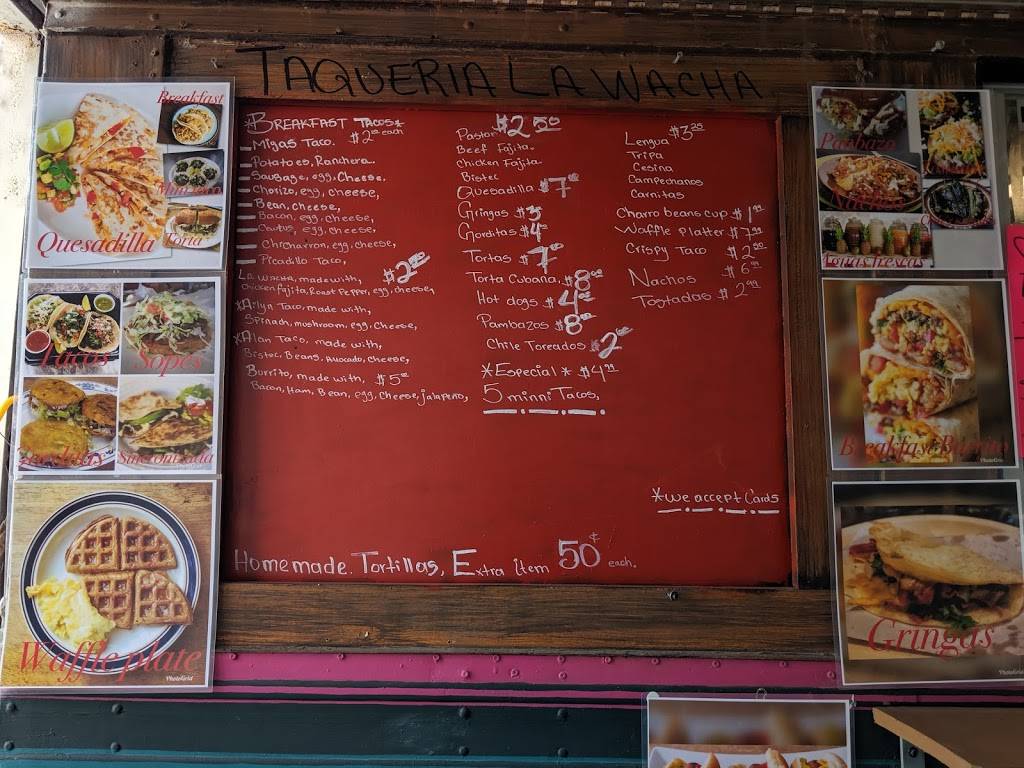 TAQUERIA LA WACHA
*BREAKFAST TACOS*
Migas Taco. $2 each
Potatoes, Ranchera.
Sausage, egg, Cheese,
Chorizo, egg, cheese,
Bean, cheese,
Bacon, egg, cheese,
egg, cheese,
Chicharron, egg, cheese,
Picadillo Taco,
La Wacha, made with, $2
Chicken fajita, Roast Pepper, egg, cheese,
*Arlyn Taco, made with,
Spinach, mushroom, egg, Cheese,
*Alan Taco, made with,
Bistec, Beans, Avocado, cheese,
Burrito, made with, $5
Bacon, Ham, Bean, egg, Cheese, jalapeño,
Pastor $2.50
Beef Fajita.
Chicken Fajita.
Bistec
Quesadilla $7
Gringas $3
Gorditas $4
Tortas $7
Torta Cubana, $8
Hot dogs $4
Pambazos $8
Chile Toreados $2
*Especial* $4.99
5 minni Tacos,
Lengua $3.25
Tripa
Cesina
Campechanos
Carnitas
Charro beans cup $1.99
Waffle Platter $7.99
Crispy Taco $2.50
Nachos $6.99
Tostadas $2.99
*we accept Cards
Homemade. Tortillas, Extra item 50¢ each.
Breakfast
Quesadilla
Torta
Tacos
Sopes
Gorditas
Sincronizada
Waffle plate
PhotoGrid
Pambazo
Nachos
Aguas frescas
Breakfast Burrito
PhotoGrid
Gringas
PhotoGrid